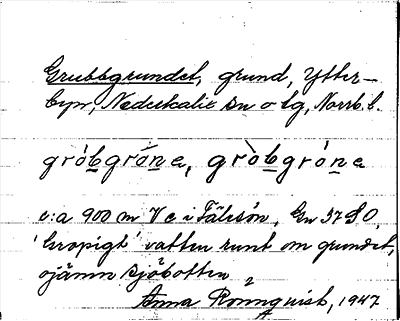 Grubbgrundet, grund, Ytter-
byn, Nederkalix sn o tg, Norrb. l.
gròbgróne, gròbgróne
c:a 900 m V c i Fälsön, Gn 37 SO,
'Gropigt' vatten runt om grundet,
ojämn sjöbotten
Anna Rönnquist, 1947